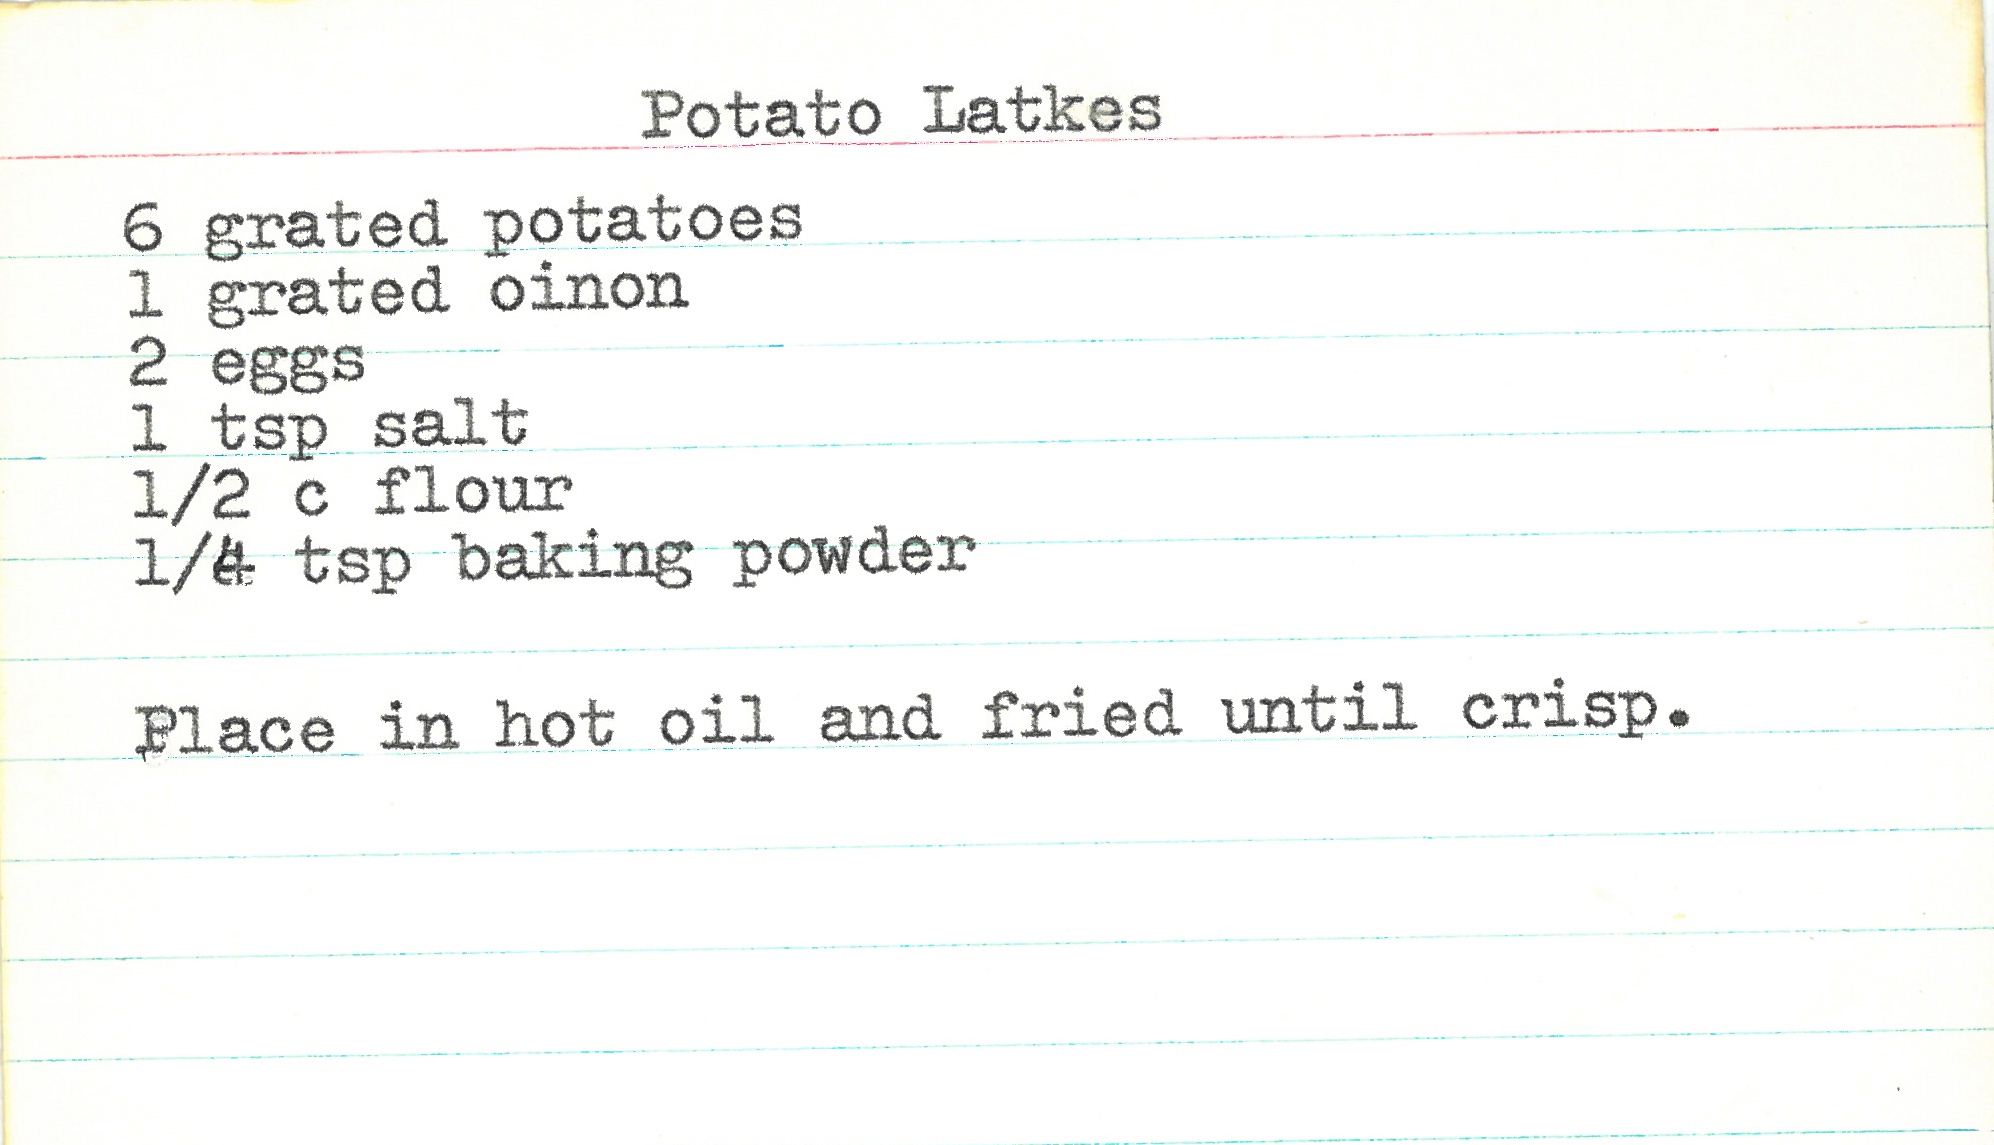 Potato Latkes
6 grated potatoes
1 grated oinon
2 eggs
1 tsp salt
1/2 c flour
1/4 tsp baking powder
Place in hot oil and fried until crisp.